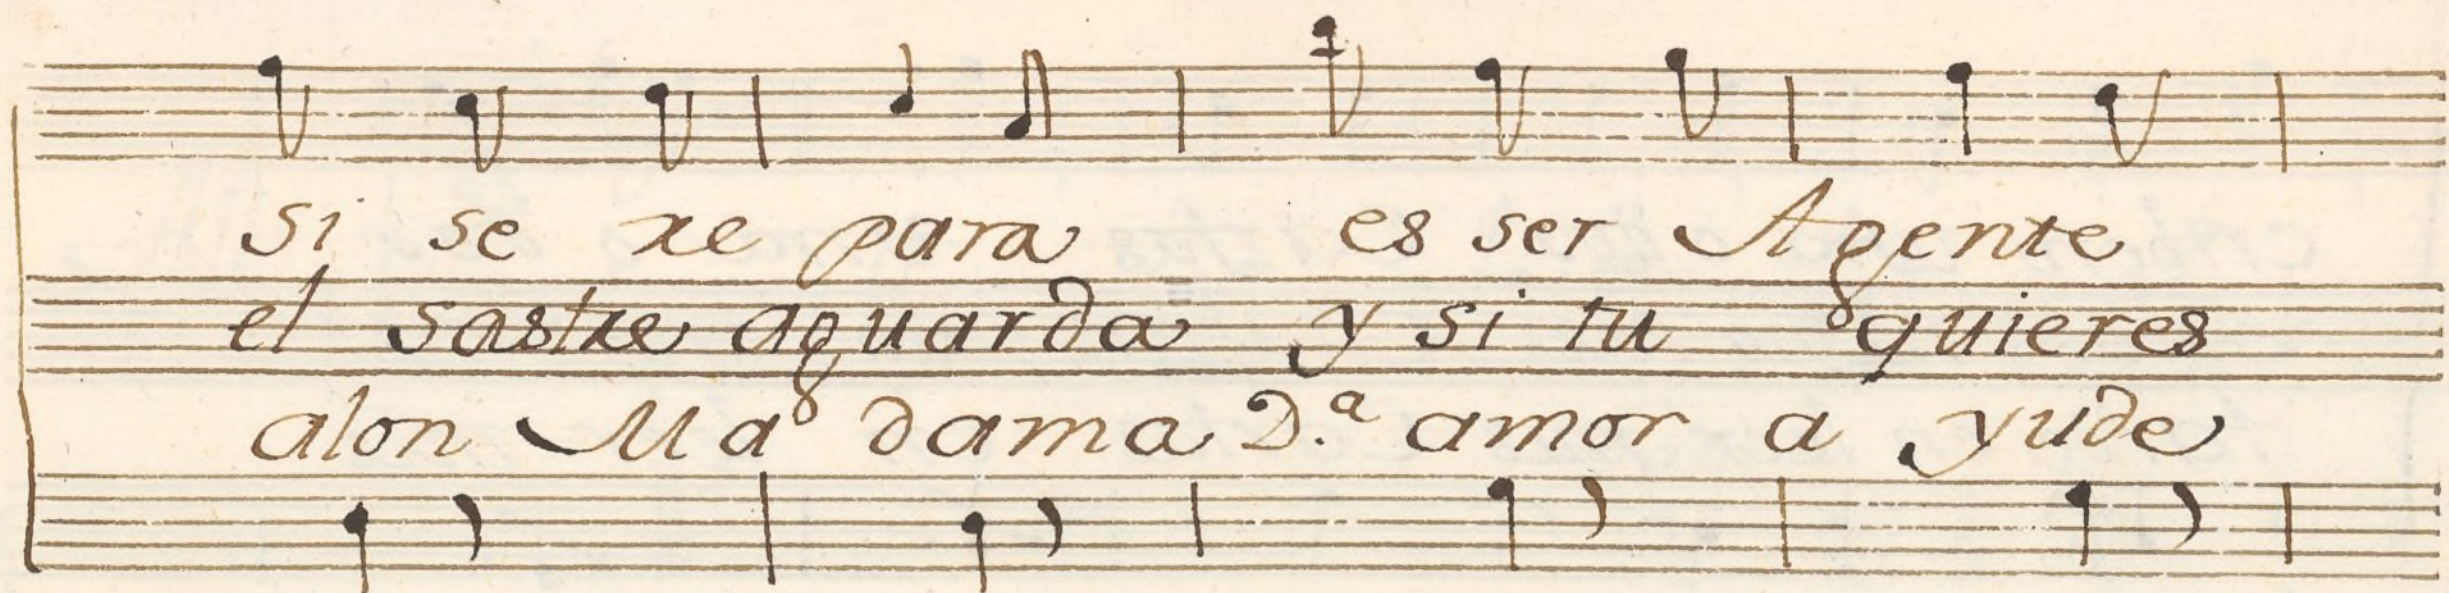 si se repara es ser Agente
el sastre aguarda y si tu quieres
alon Ma dama D.ª amor a yude